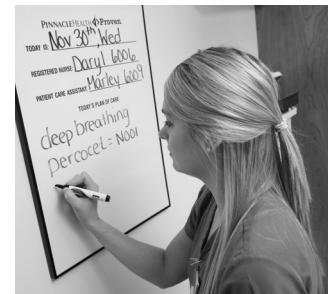 PINNACLEHEALTH Proven
TODAY IS: Nov 30th, Wed
REGISTERED NURSE: Daryl 6006
PATIENT CARE ASSISTANT: Marley 6009
TODAY'S PLAN OF CARE
deep breathing
percocet = NOON